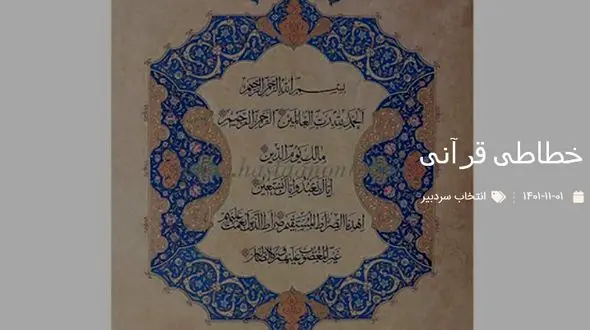 بسم الله الرحمن الرحيم
الحمد لله رب العالمين الرحمن الرحيم
مالك يوم الدين
إياك نعبد وإياك نستعين
اهدنا الصراط المستقيم صراط الذين أنعمت عليهم
غير المغضوب عليهم ولا الضالين
خطاطی قرآنی
۱۴۰۱-۱۱-۰۱
انتخاب سردبیر